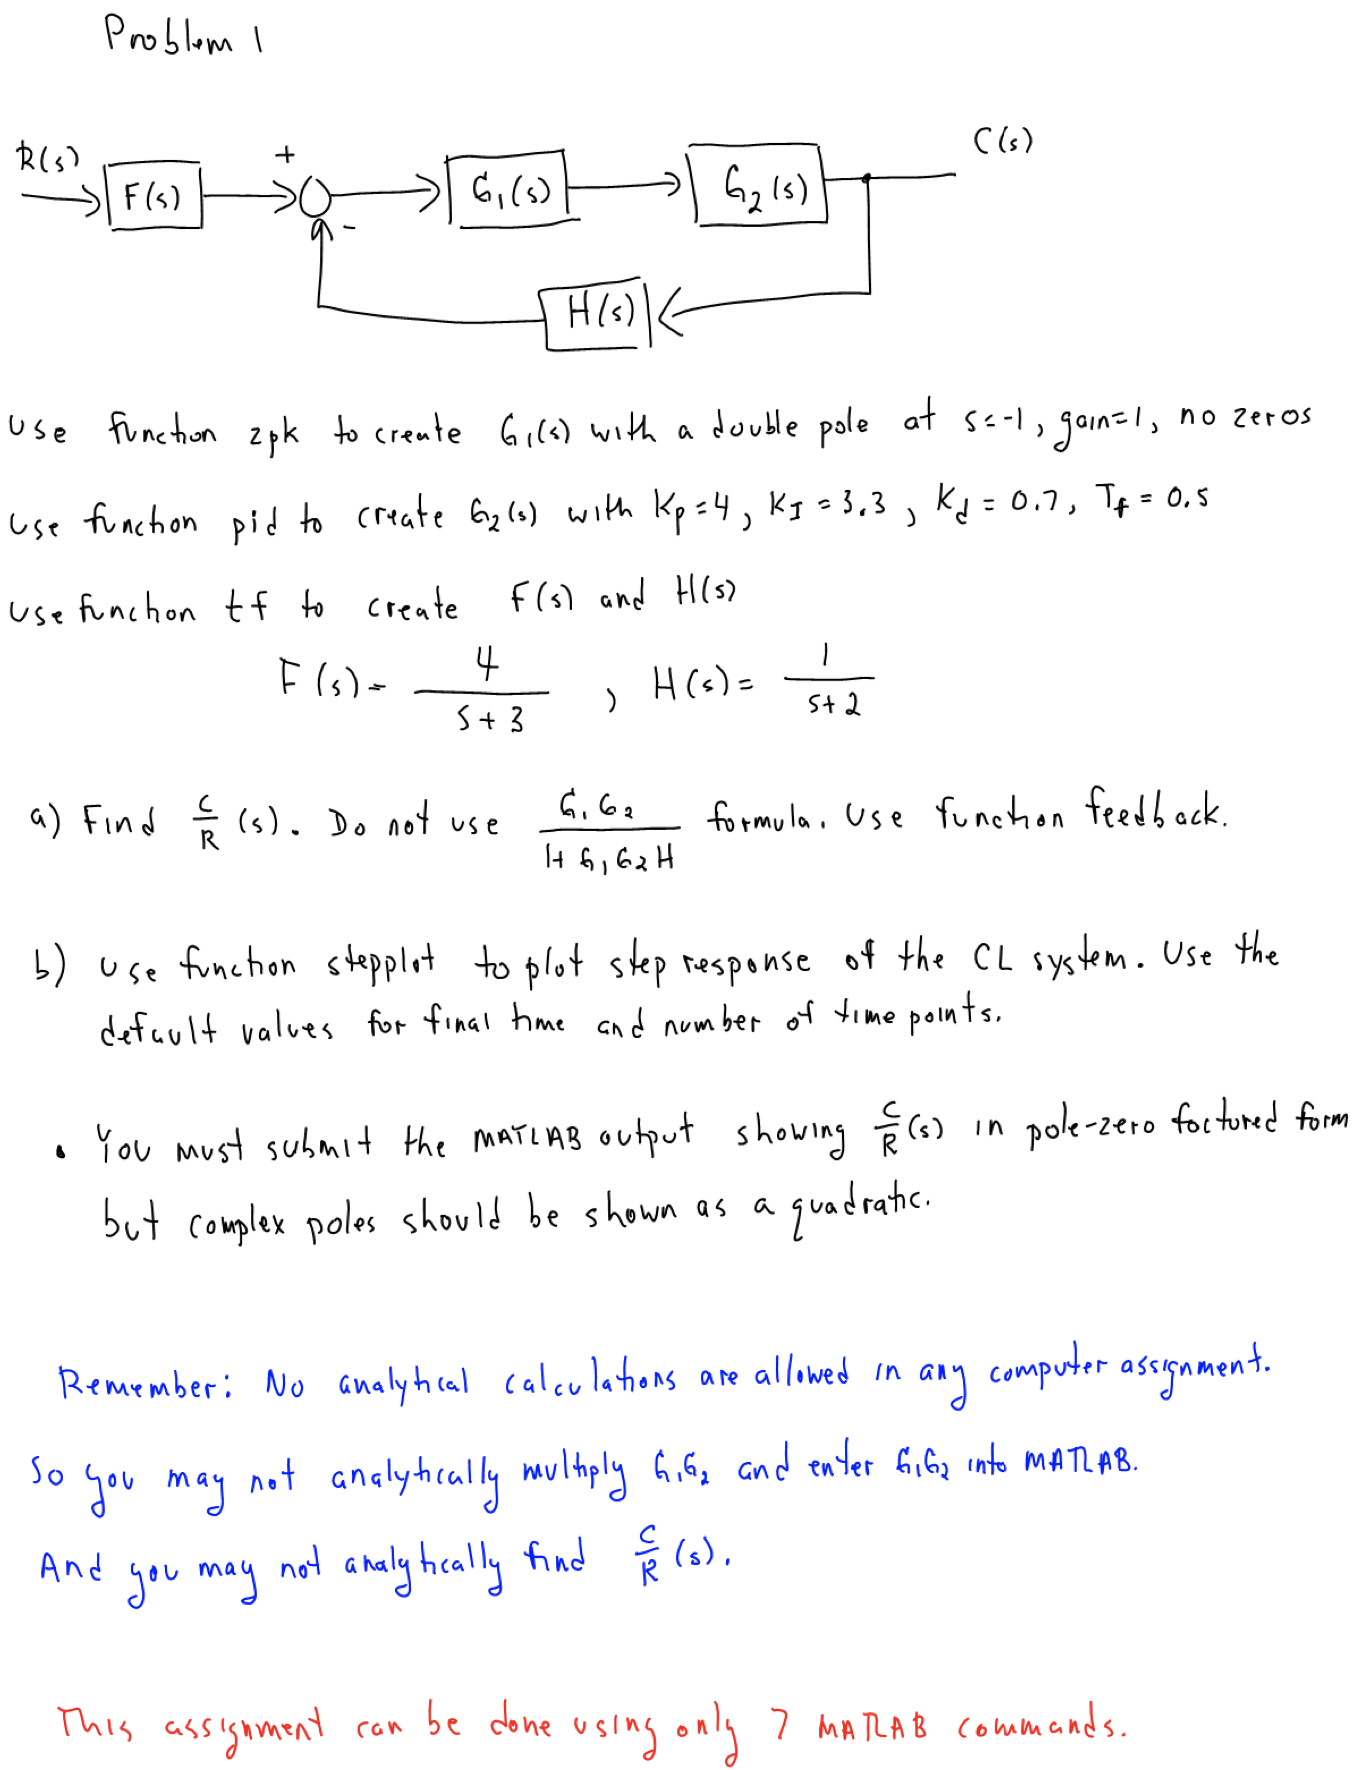 Problem 1
R(s) F(s) + - G₁(s) G₂(s) C(s)
H(s)
Use function zpk to create G₁(s) with a double pole at s=-1, gain=1, no zeros
Use function pid to create G₂(s) with Kp=4, KI=3.3, Kd=0.7, Tf=0.5
Use function tf to create F(s) and H(s)
F(s)= 4/(s+3) , H(s)= 1/(s+2)
a) Find C/R (s). Do not use G₁G₂/(1+G₁G₂H) formula. Use function feedback.
b) Use function stepplot to plot step response of the CL system. Use the
default values for final time and number of time points.
• You must submit the MATLAB output showing C/R (s) in pole-zero factored form
but complex poles should be shown as a quadratic.
Remember: No analytical calculations are allowed in any computer assignment.
So you may not analytically multiply G₁G₂ and enter G₁G₂ into MATLAB.
And you may not analytically find C/R (s).
This assignment can be done using only 7 MATLAB commands.